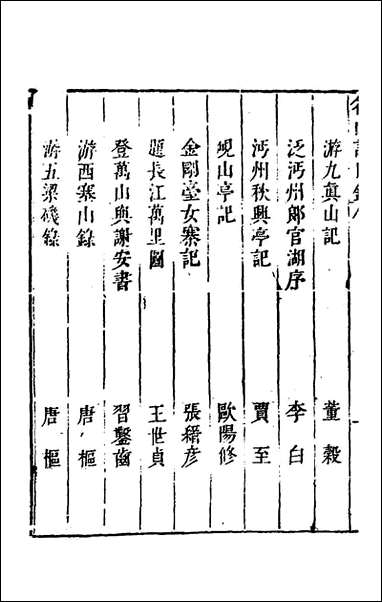 游九真山記　董穀
泛沔州郞官湖序　李白
沔州秋興亭記　賈至
峴山亭記　歐陽修
金剛臺女寨記　張縉彦
題長江萬里圖　王世貞
登萬山與謝安書　習鑿齒
游西塞山錄　唐樞
游五梁磯錄　唐樞